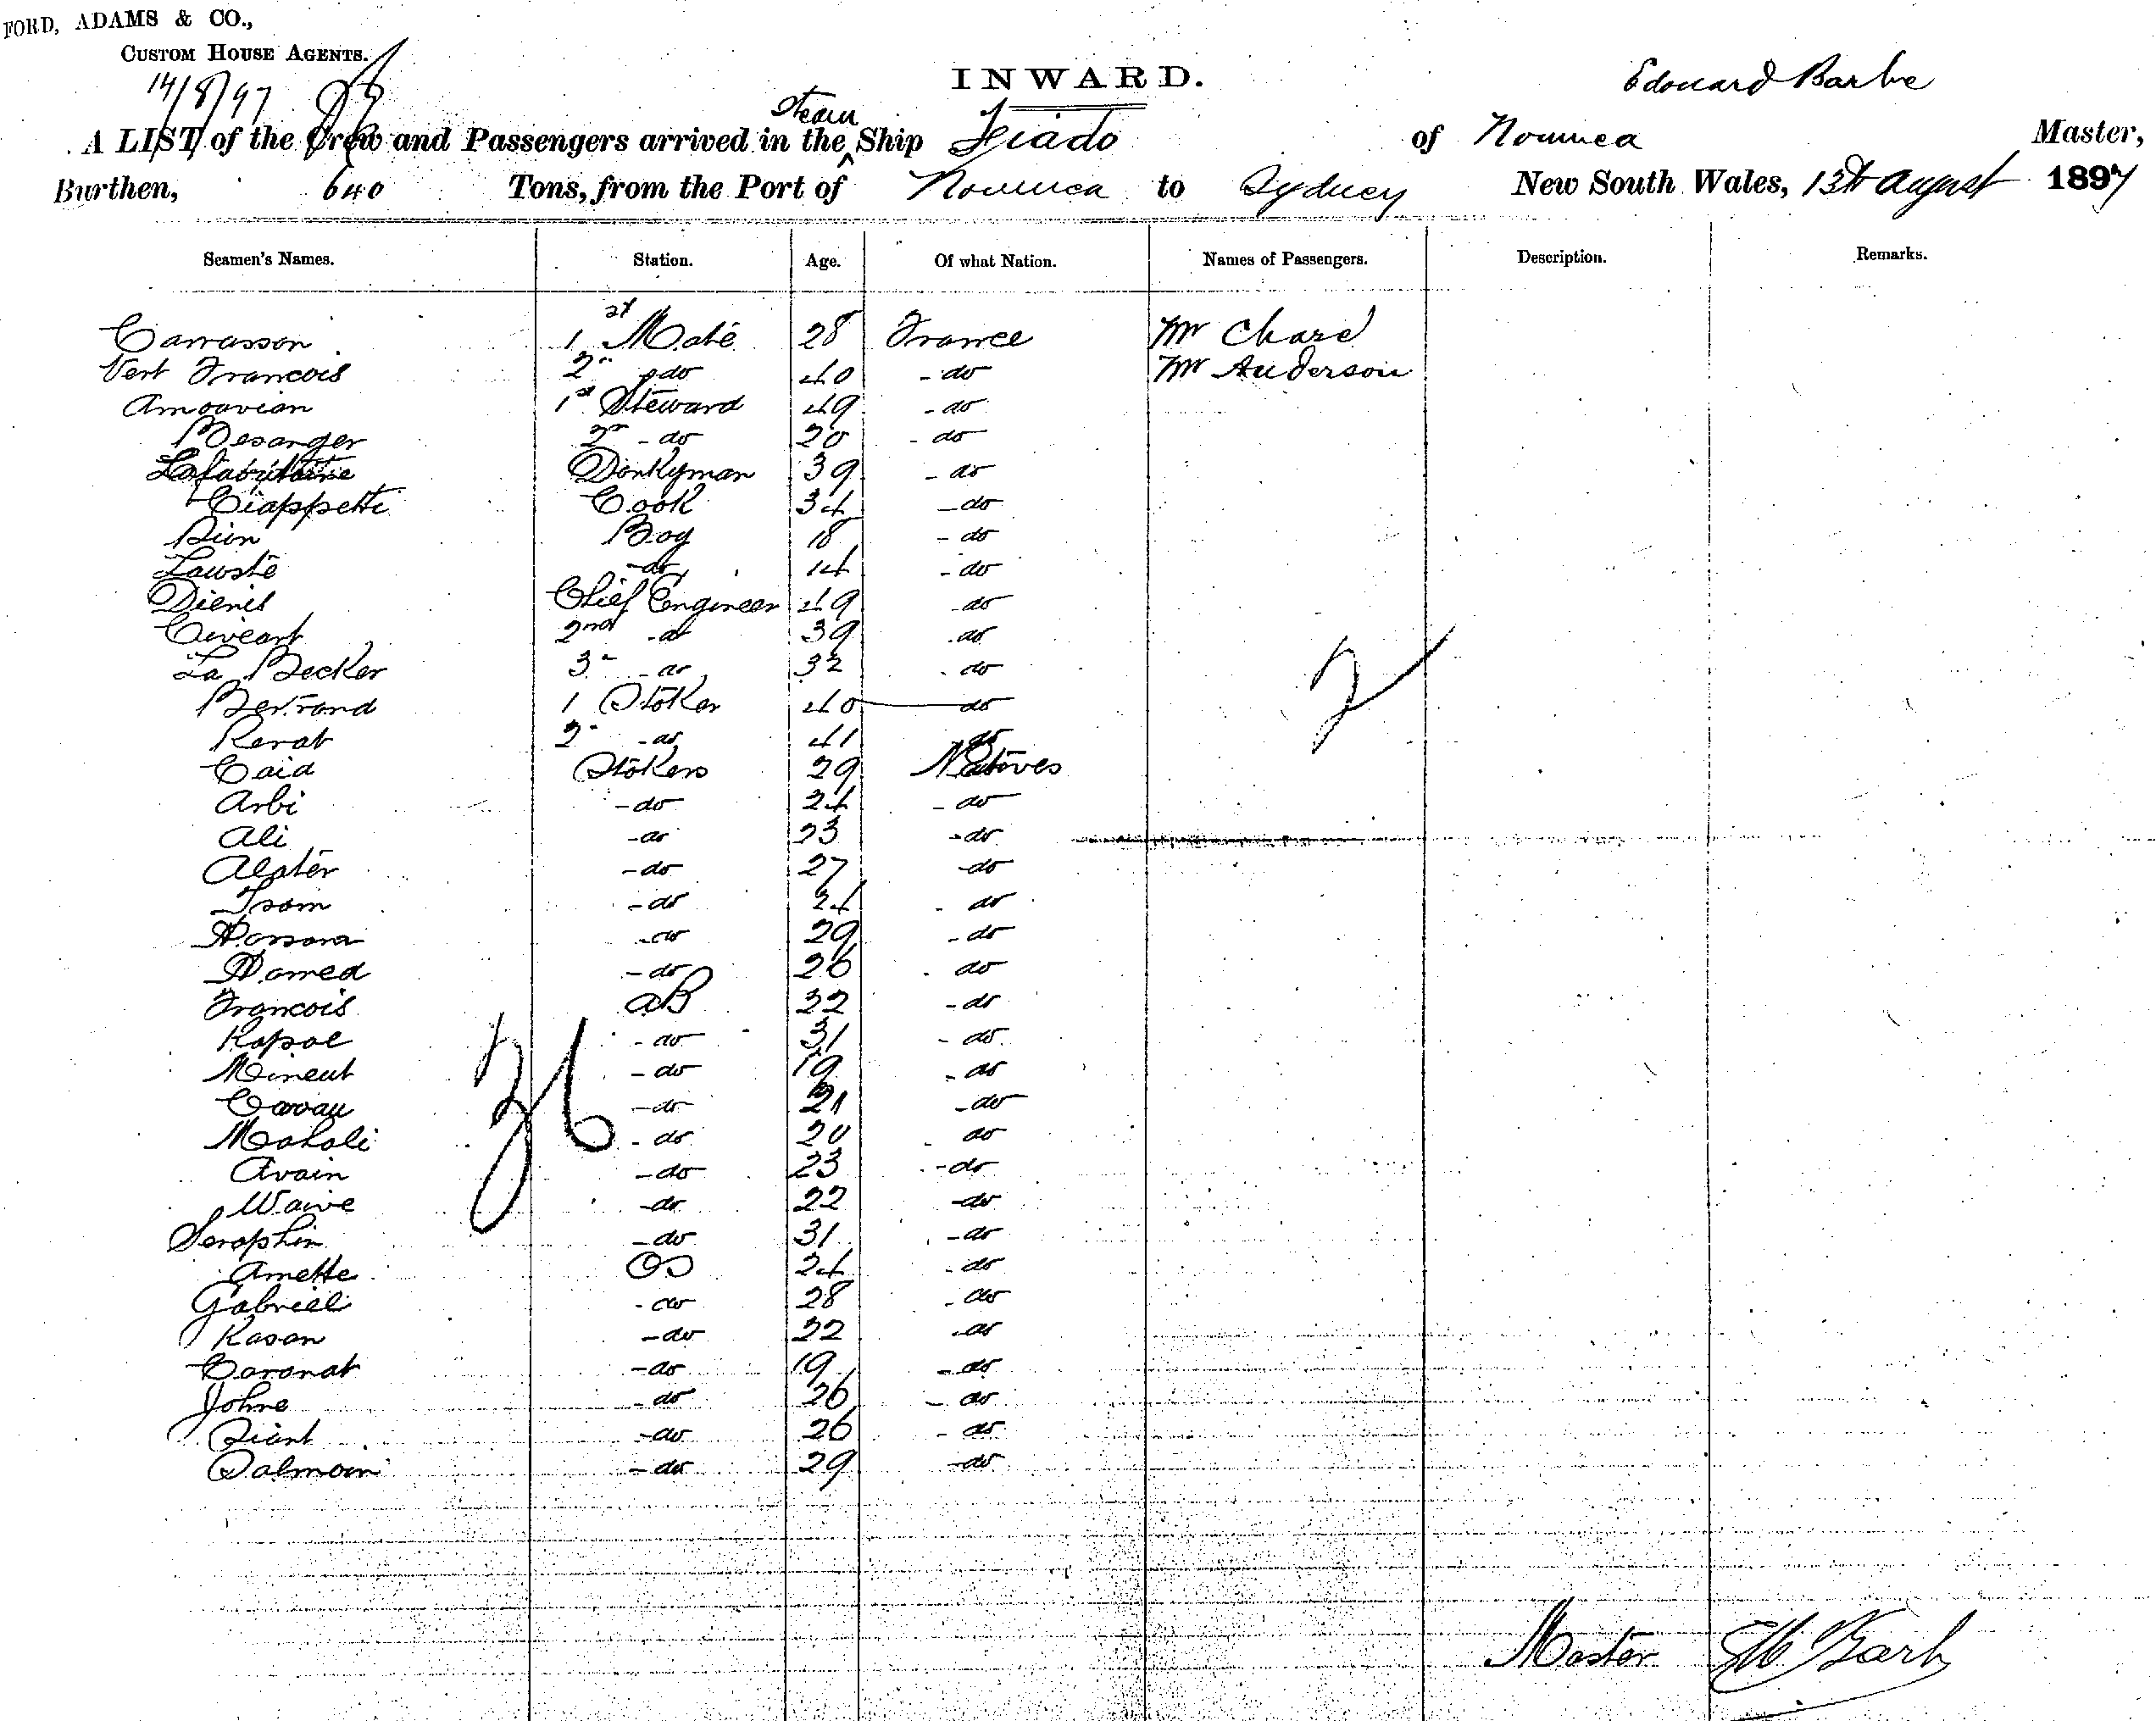 FORD, ADAMS & CO.,
CUSTOM HOUSE AGENTS.
14/8/97
INWARD.
Edouard Barbe
A LIST of the Crew and Passengers arrived in the Steam Ship of Noumea Master,
Burthen, 640 Tons, from the Port of Noumea to Sydney New South Wales, 13th August 1897
Seamen's Names. Station. Age. Of what Nation. Names of Passengers. Description. Remarks.
Carrasson 1st Mate 28 France Mr Chard
Vert Francois 2n do 40 - do Mr Anderson
Amouvian 1st Steward 49 - do
Besanger 2n - do 20 - do
Donkyman 39 - do
Ciappetti Cook 34 - do
Bion Boy 18 - do
Lawste - do 14 - do
Dienis Chief Engineer 49 - do
Civeart 2nd - do 39 - do
La Becker 3 - do 32 - do
Bertrand 1 Stoker 40 do
Kerat 2 - do 41 do
Caid Stokers 29 Natives
Arbi - do 24 - do
Ali - do 23 - do
Alster - do 27 - do
Isom - do 24 - do
Hassana - do 29 - do
Hamed - do 26 - do
Francois AB 32 - do
Kapoe - do 31 - do
Mineut - do 19 - do
Cavau - do 21 - do
Mahali - do 20 - do
Avain - do 23 - do
Waive - do 22 - do
Seraphin - do 31 - do
Amette OS 24 - do
Gabriel - do 28 - do
Kasan - do 22 - do
Caronat - do 19 - do
Johne - do 26 - do
Siant - do 26 - do
Salmon - do 29 - do
2
36
Master Barbe